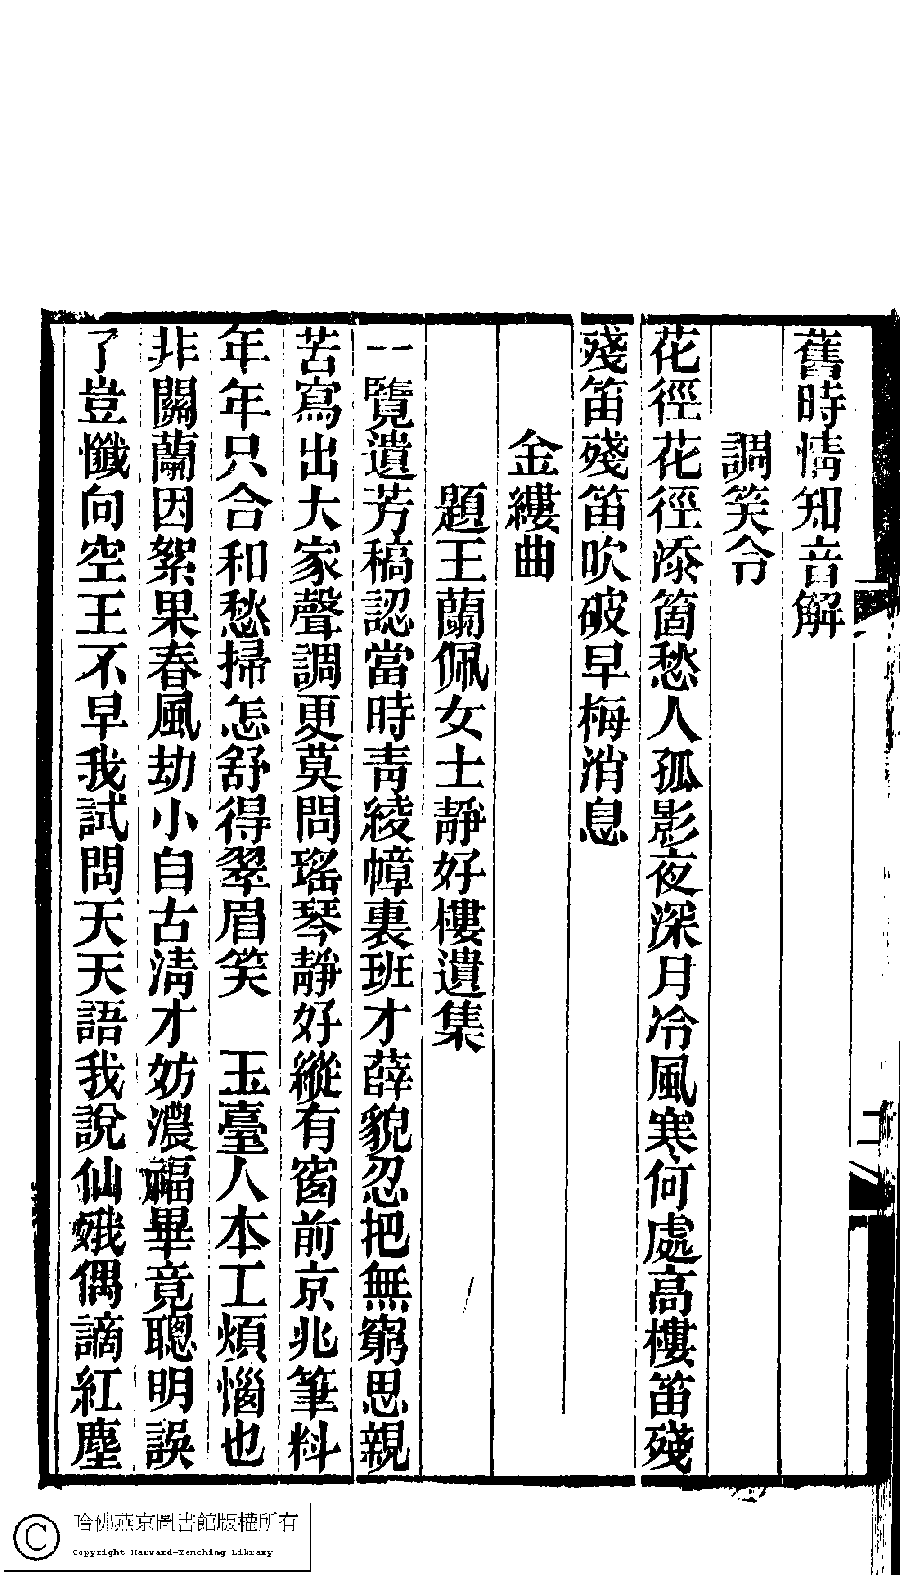 舊時情知音解
調笑令
花徑花徑添箇愁人孤影夜深月冷風寒何處高樓笛殘
殘笛殘笛吹破早梅消息
金縷曲
題王蘭佩女士靜好樓遺集
一覽遺芳稿認當時靑綾幛裏班才薛貌忍把無窮思親
苦寫出大家聲調更莫問瑤琴靜好縱有窗前京兆筆料
年年只合和愁掃怎舒得翠眉笑　玉臺人本工煩惱也
非關蘭因絮果春風劫小自古淸才妨濃福畢竟聰明誤
了豈懺向空王不早我試問天天語我說仙娥偶謫紅塵
二
哈佛燕京圖書館版權所有
Copyright Harvard-Yenching Library